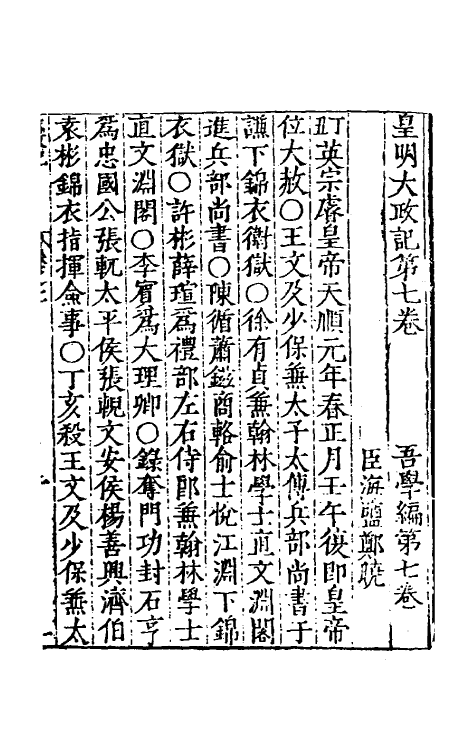 皇明大政記第七卷　吾學編第七卷
臣海鹽鄭曉
英宗睿皇帝天順元年春正月壬午復即皇帝
位大赦〇王文及少保兼太子太傅兵部尚書于
謙下錦衣衛獄〇徐有貞兼翰林學士直文淵閣
進兵部尚書〇陳循蕭鎡商輅俞士悅江淵下錦
衣獄〇許彬薛瑄爲禮部左右侍郎兼翰林學士
直文淵閣〇李賓爲大理卿〇錄奪門功封石亨
爲忠國公張軏太平侯張輗文安侯楊善興濟伯
袁彬錦衣指揮僉事〇丁亥殺王文及少保兼太